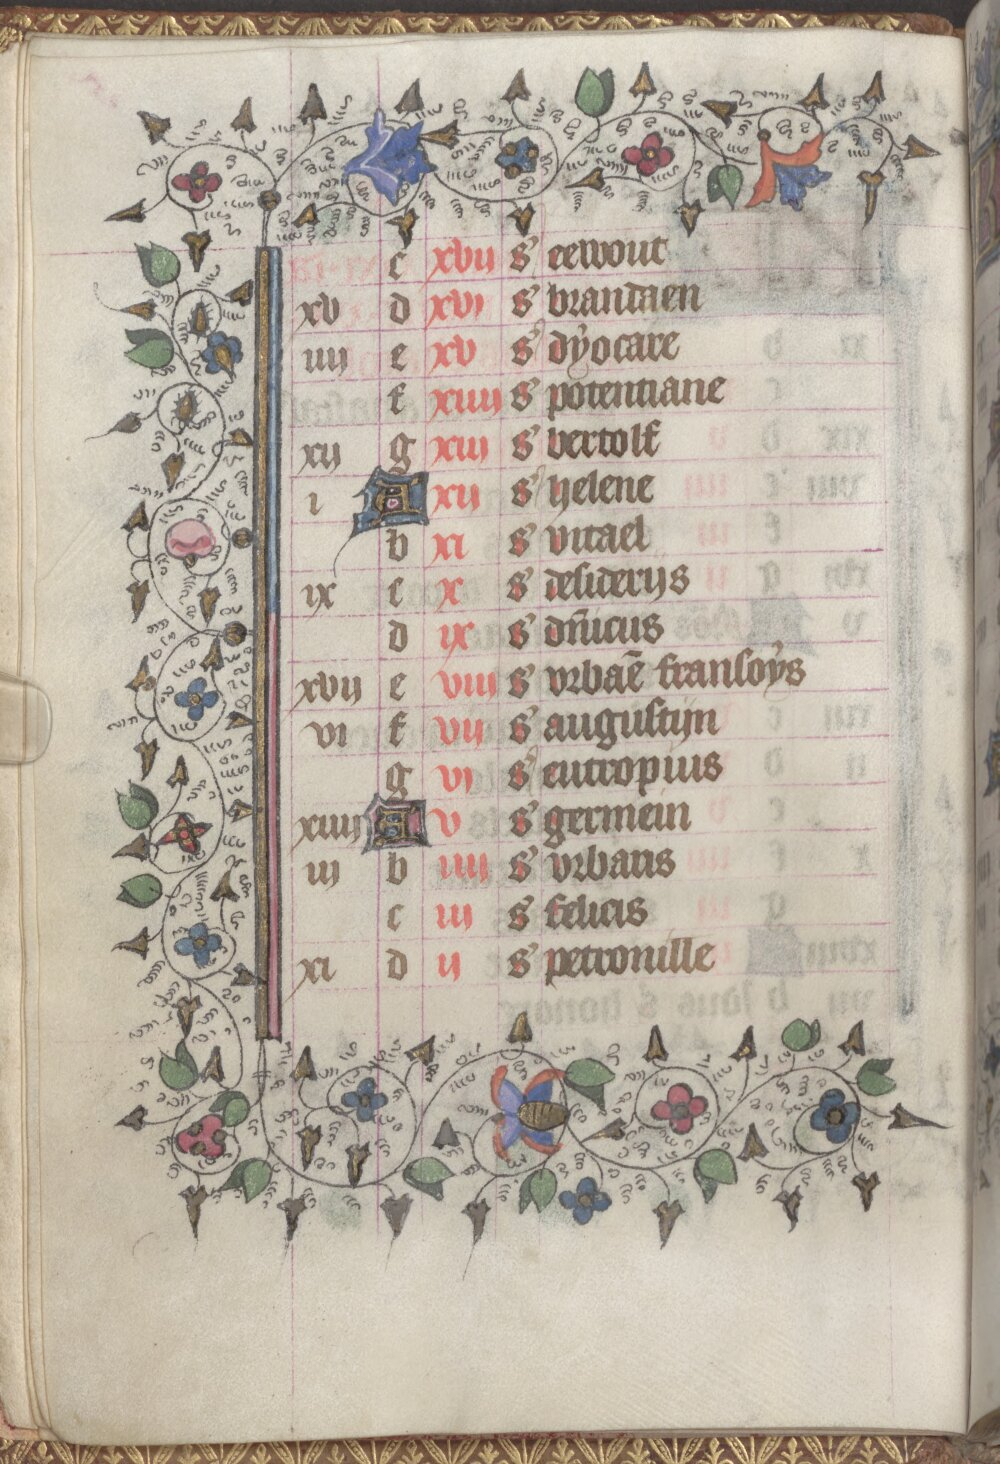 c xvii s' eewout
xv d xvi s' brandaen
iiij e xv s' dyocare
f xiiij s' potentiane
xij g xiij s' bertolf
i A xij s' helene
b xi s' vitael
ix c x s' desiderijs
d ix s' dn̄icus
xvij e viij s' vrbaē fransoys
vi f vij s' augustijn
g vi s' eutropius
xiiij A v s' germein
iij b iiij s' vrbans
c iij s' felicis
xi d ij s' petronille